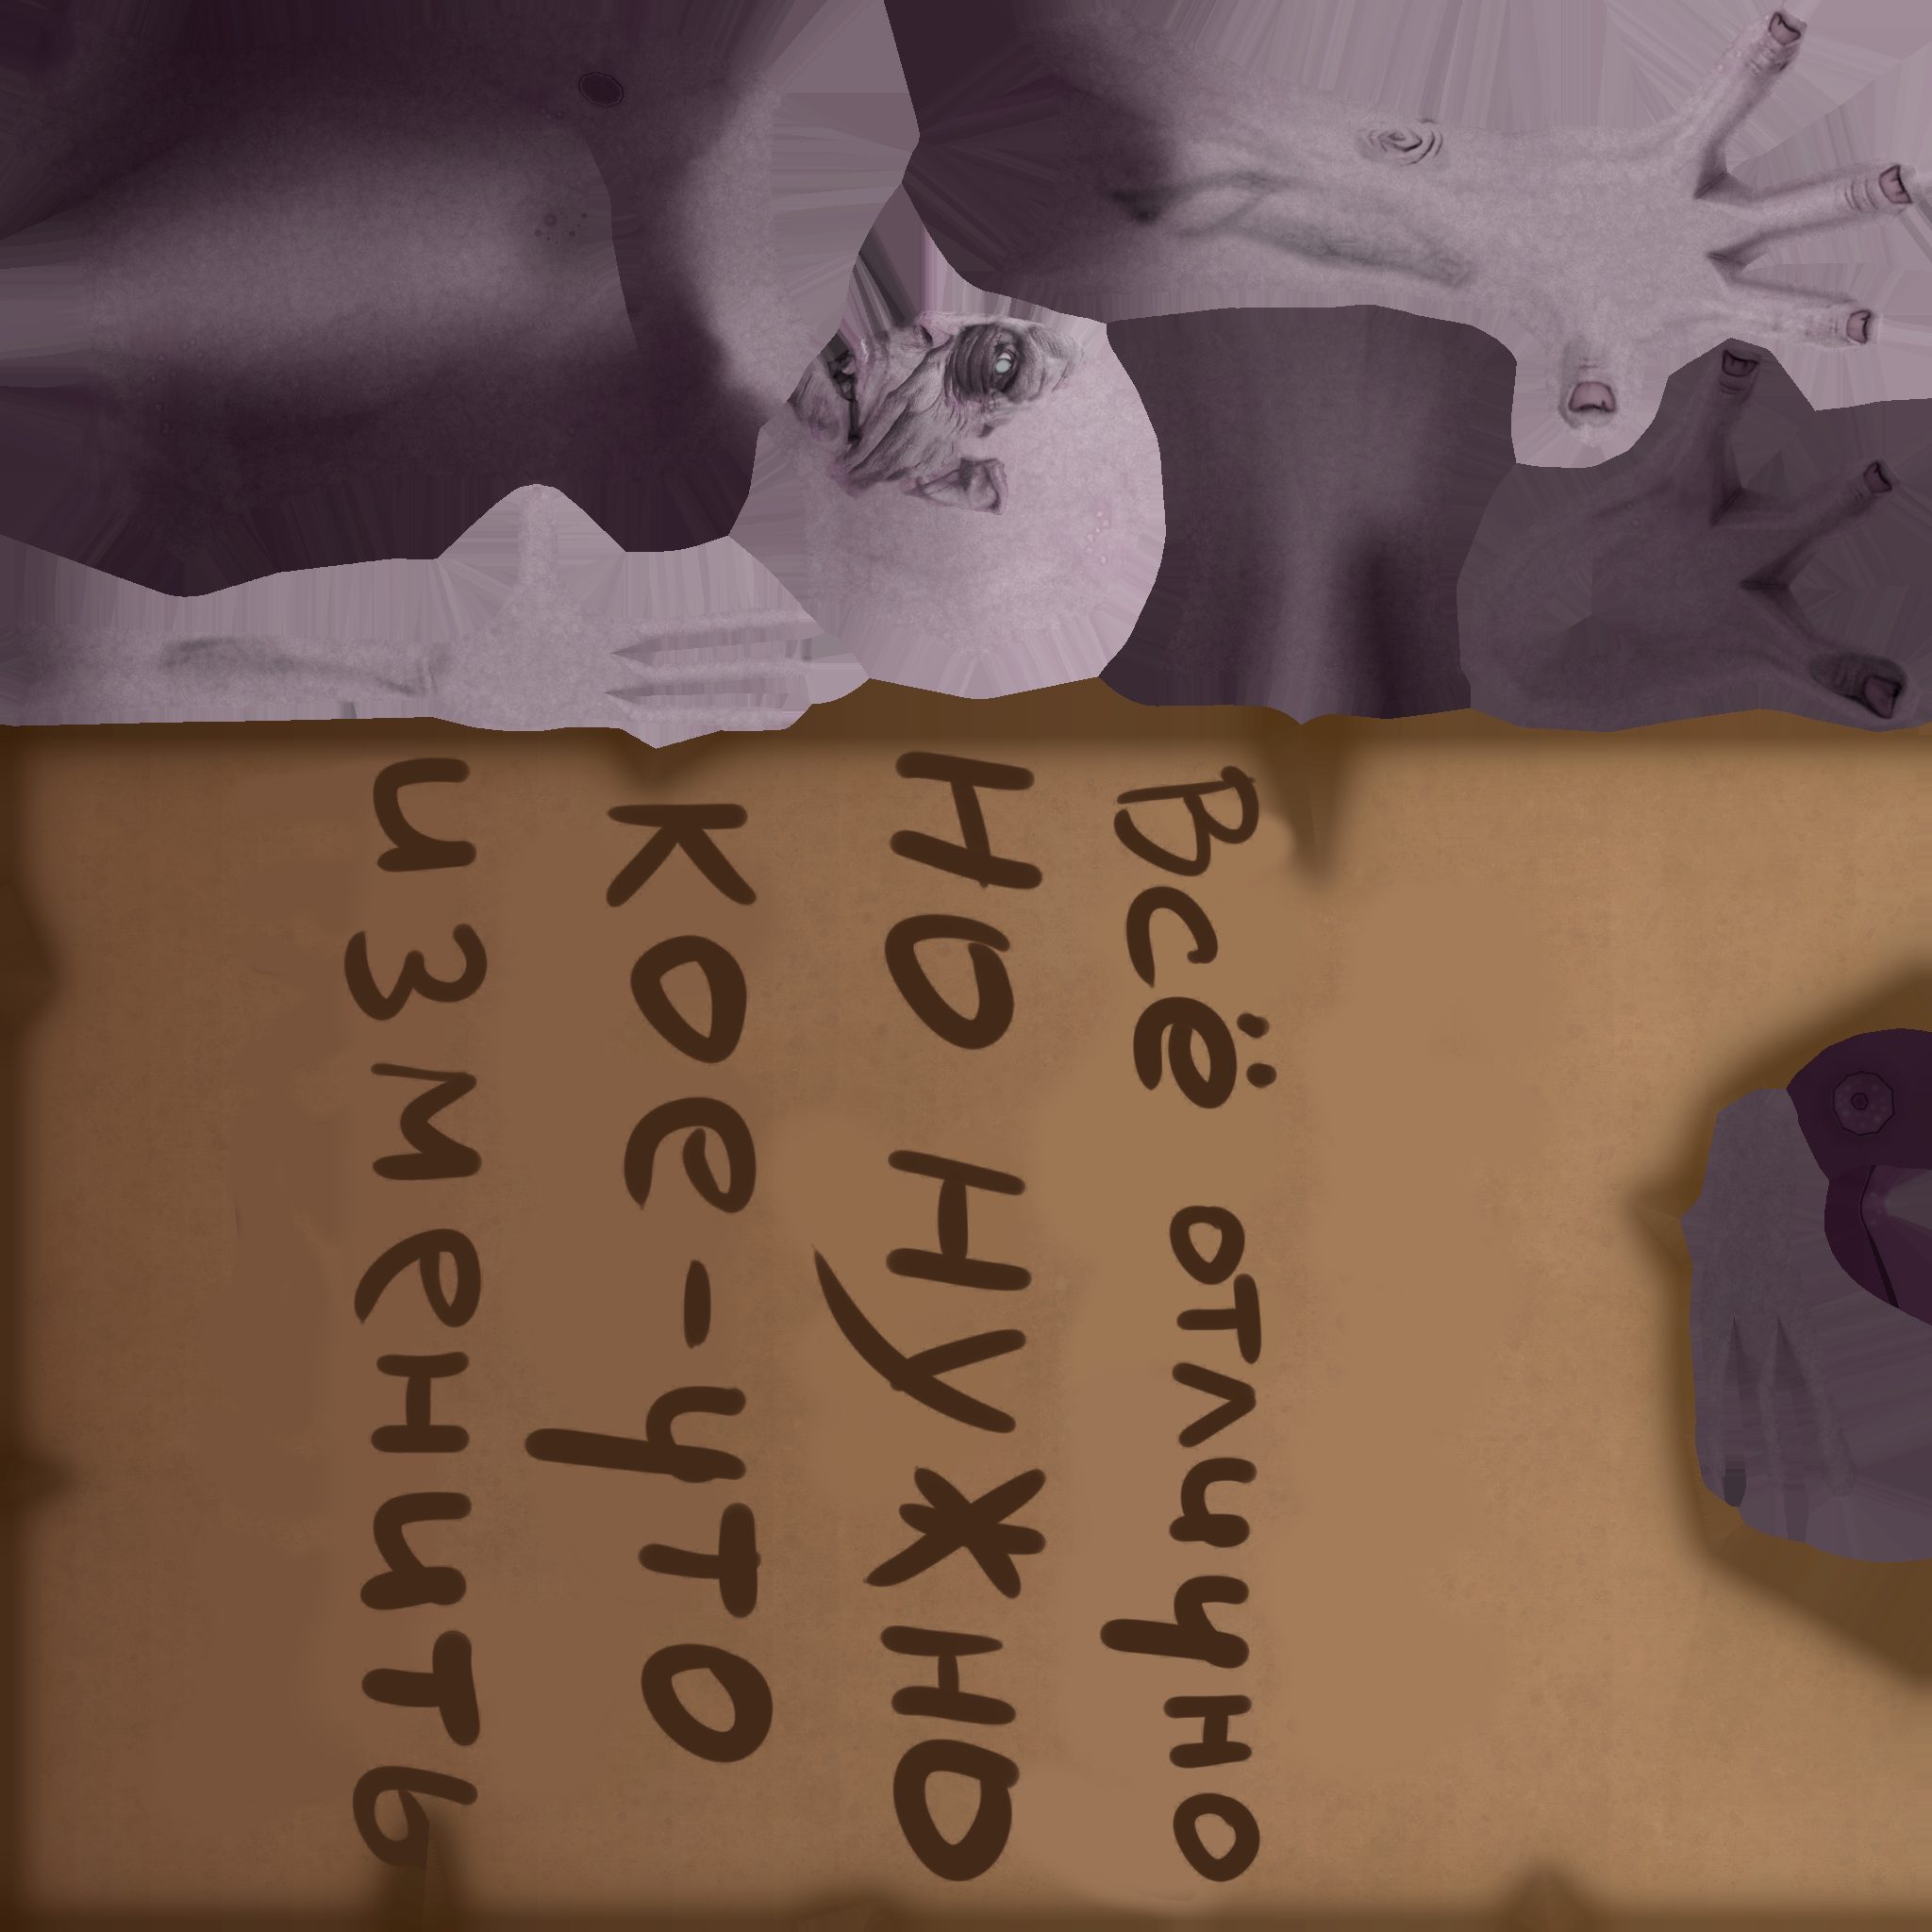 Всё отлично
но нужно
кое-что
изменить